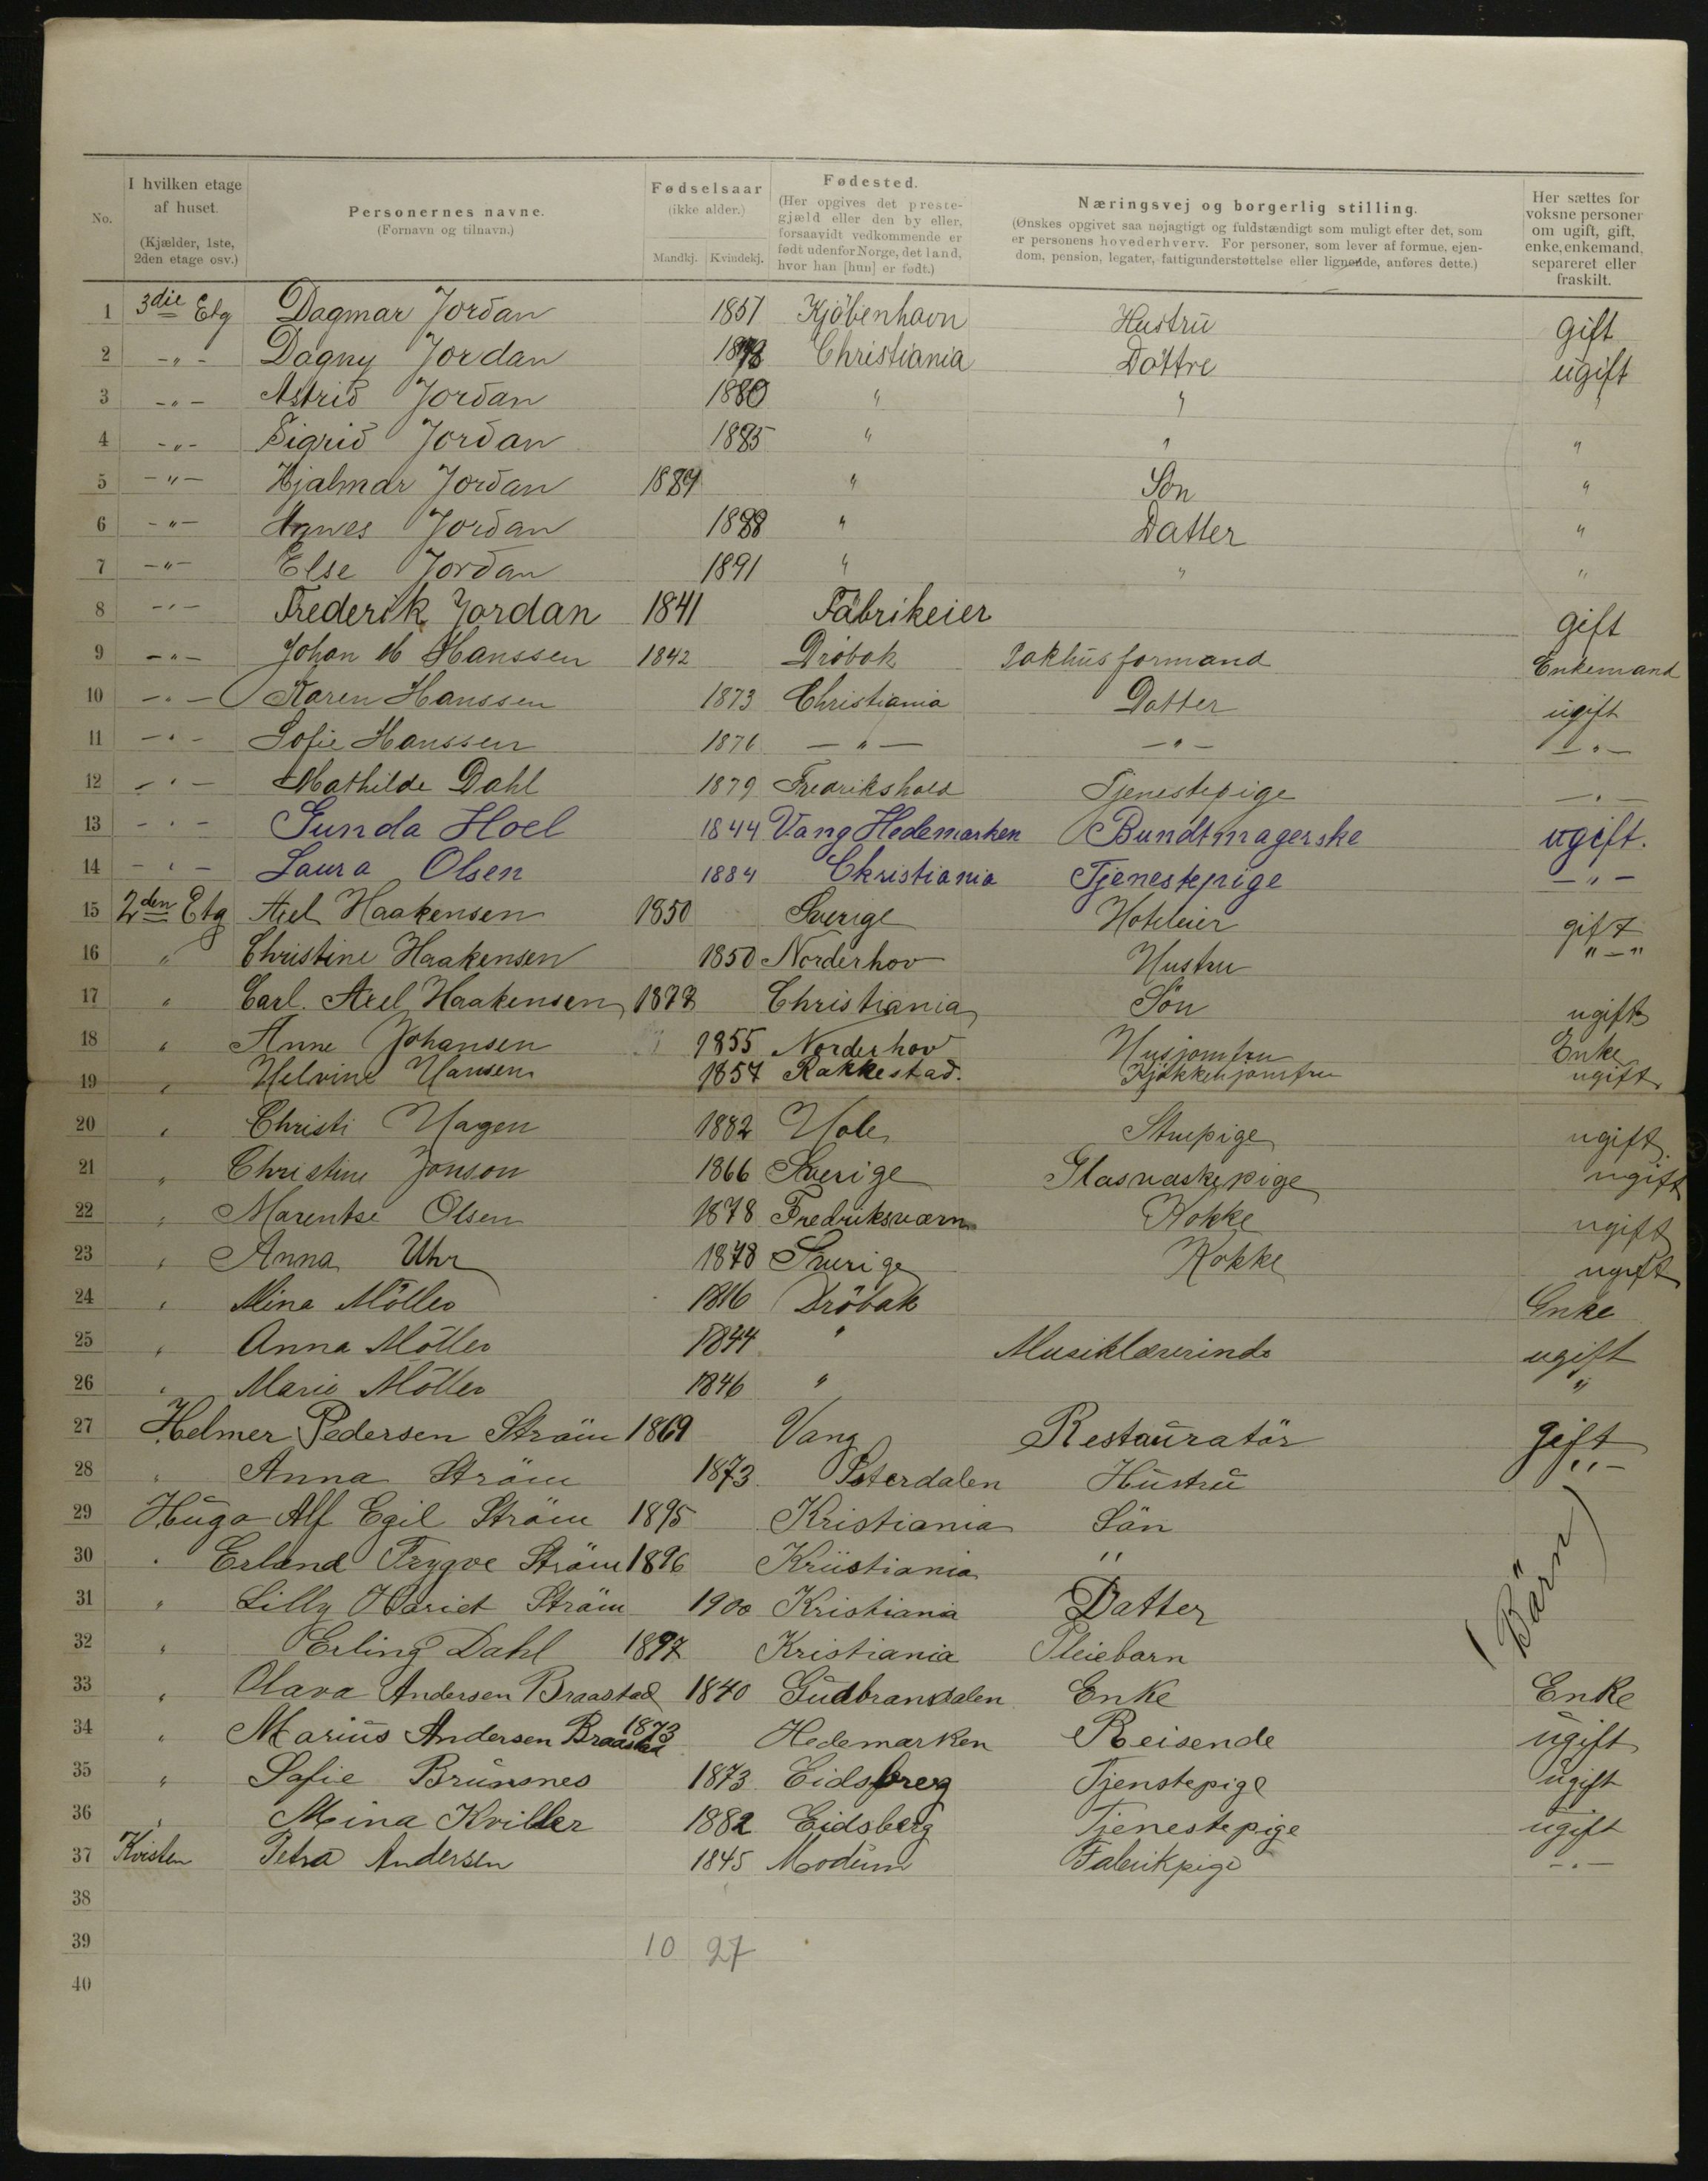 No. I hvilken etage af huset. (Kjælder, 1ste, 2den etage osv.) Personernes navne. (Fornavn og tilnavn.) Fødselsaar (ikke alder.) Mandkj. Kvindekj. Fødested. (Her opgives det prestegjæld eller den by eller, forsaavidt vedkommende er født udenfor Norge, det land, hvor han [hun] er født.) Næringsvej og borgerlig stilling. (Ønskes opgivet saa nøjagtigt og fuldstændigt som muligt efter det, som er personens hovederhverv. For personer, som lever af formue, ejendom, pension, legater, fattigunderstøttelse eller lignende, anføres dette.) Her sættes for voksne personer om ugift, gift, enke, enkemand, separeret eller fraskilt.
1 3die Etg Dagmar Jordan 1851 Kjöbenhavn Hustru gift
2 -"- Dagny Jordan 1878 Christiania Döttre ugift
3 -"- Astrid Jordan 1880 " " "
4 -"- Sigrid Jordan 1885 " " "
5 -"- Hjalmar Jordan 1887 " Sön "
6 -"- Agnes Jordan 1888 " Datter "
7 -"- Else Jordan 1891 " " "
8 -"- Frederik Jordan 1841 Fabrikeier gift
9 -"- Johan M Hanssen 1842 Dröbak Pakhusformand Enkemand
10 -"- Karen Hanssen 1873 Christiania Datter ugift
11 -"- Sofie Hanssen 1876 -"- -"- -"-
12 -"- Mathilde Dahl 1879 Fredrikshald Tjenestepige -"-
13 -"- Gunda Hoel 1844 Vang Hedemarken Bundtmagerske ugift.
14 -"- Laura Olsen 1884 Christiania Tjenestepige -"-
15 2den Etg Axel Haakensen 1850 Sverige Hoteleier gift
16 " Christine Haakensen 1850 Norderhov Hustru "-"
17 " Carl. Axel Haakensen 1878 Christiania Sön ugift
18 " Anne Johansen 1855 Norderhov Husjomfru Enke
19 " Helvine Hansen 1857 Rakkestad. Kjökkenjomfru ugift
20 " Christi Hagen 1882 Hole Stuepige ugift
21 " Christine Jonson 1866 Sverige Glasvaskepige ugift
22 " Marentse Olsen 1878 Fredriksværn Kokke ugift
23 " Anna Uhr 1878 Sverige Kokke ugift
24 " Mina Möller 1816 Dröbak Enke
25 " Anna Möller 1844 " Musiklærerinde ugift
26 " Marie Möller 1846 " "
27 Helmer Pedersen Ström 1869 Vang Restauratör gift
28 " Anna Ström 1873. Österdalen Hustru "-
29 Hugo Alf Egil Ström 1895 Kristiania Sön
30 " Erland Trygve Ström 1896 Kristiania "
31 " Lilly Hariet Ström 1900 Kristiania Datter
32 " Erling Dahl 1897 Kristiania Pleiebarn
(Börn)
33 " Olava Andersen Braastad 1840 Gudbrandsalen Enke Enke
34 " Marius Andersen Braastad 1873 Hedemarken Reisende ugift
35 " Sofie Brunsnes 1873 Eidsberg Tjenstepige ugift
36 " Mina Kviller 1882 Eidsberg Tjenestepige ugift
37 Kvisten Petra Andersen 1845 Modum Fabrikpige -"-
38
39 10 27
40